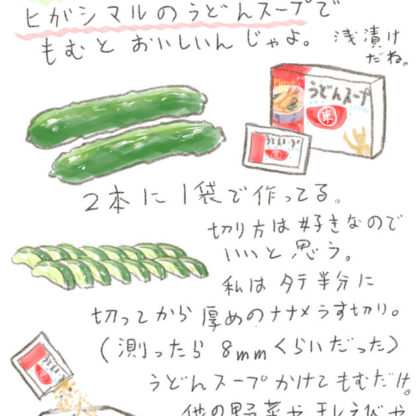 ヒガシマルのうどんスープで
もむと おいしいんじゃよ。
浅漬け
だね。
うどんスープ
東
うどんスープ
2本に1袋で作ってる。
切り方は好きなので
いいと思う。
私はタテ半分に
切ってから厚めのナナメうす切り。
(測ったら 8mmくらいだった)
うどんスープかけてもむだけ。
他の野菜や干しえびや